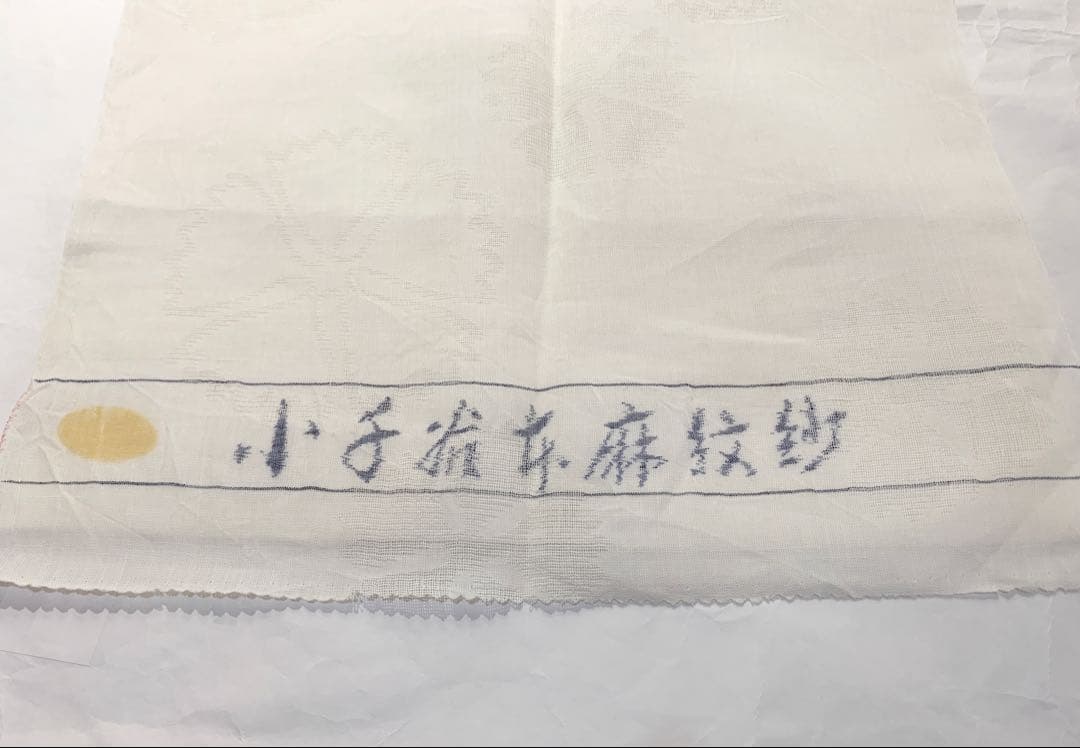 小千谷本麻紋紗